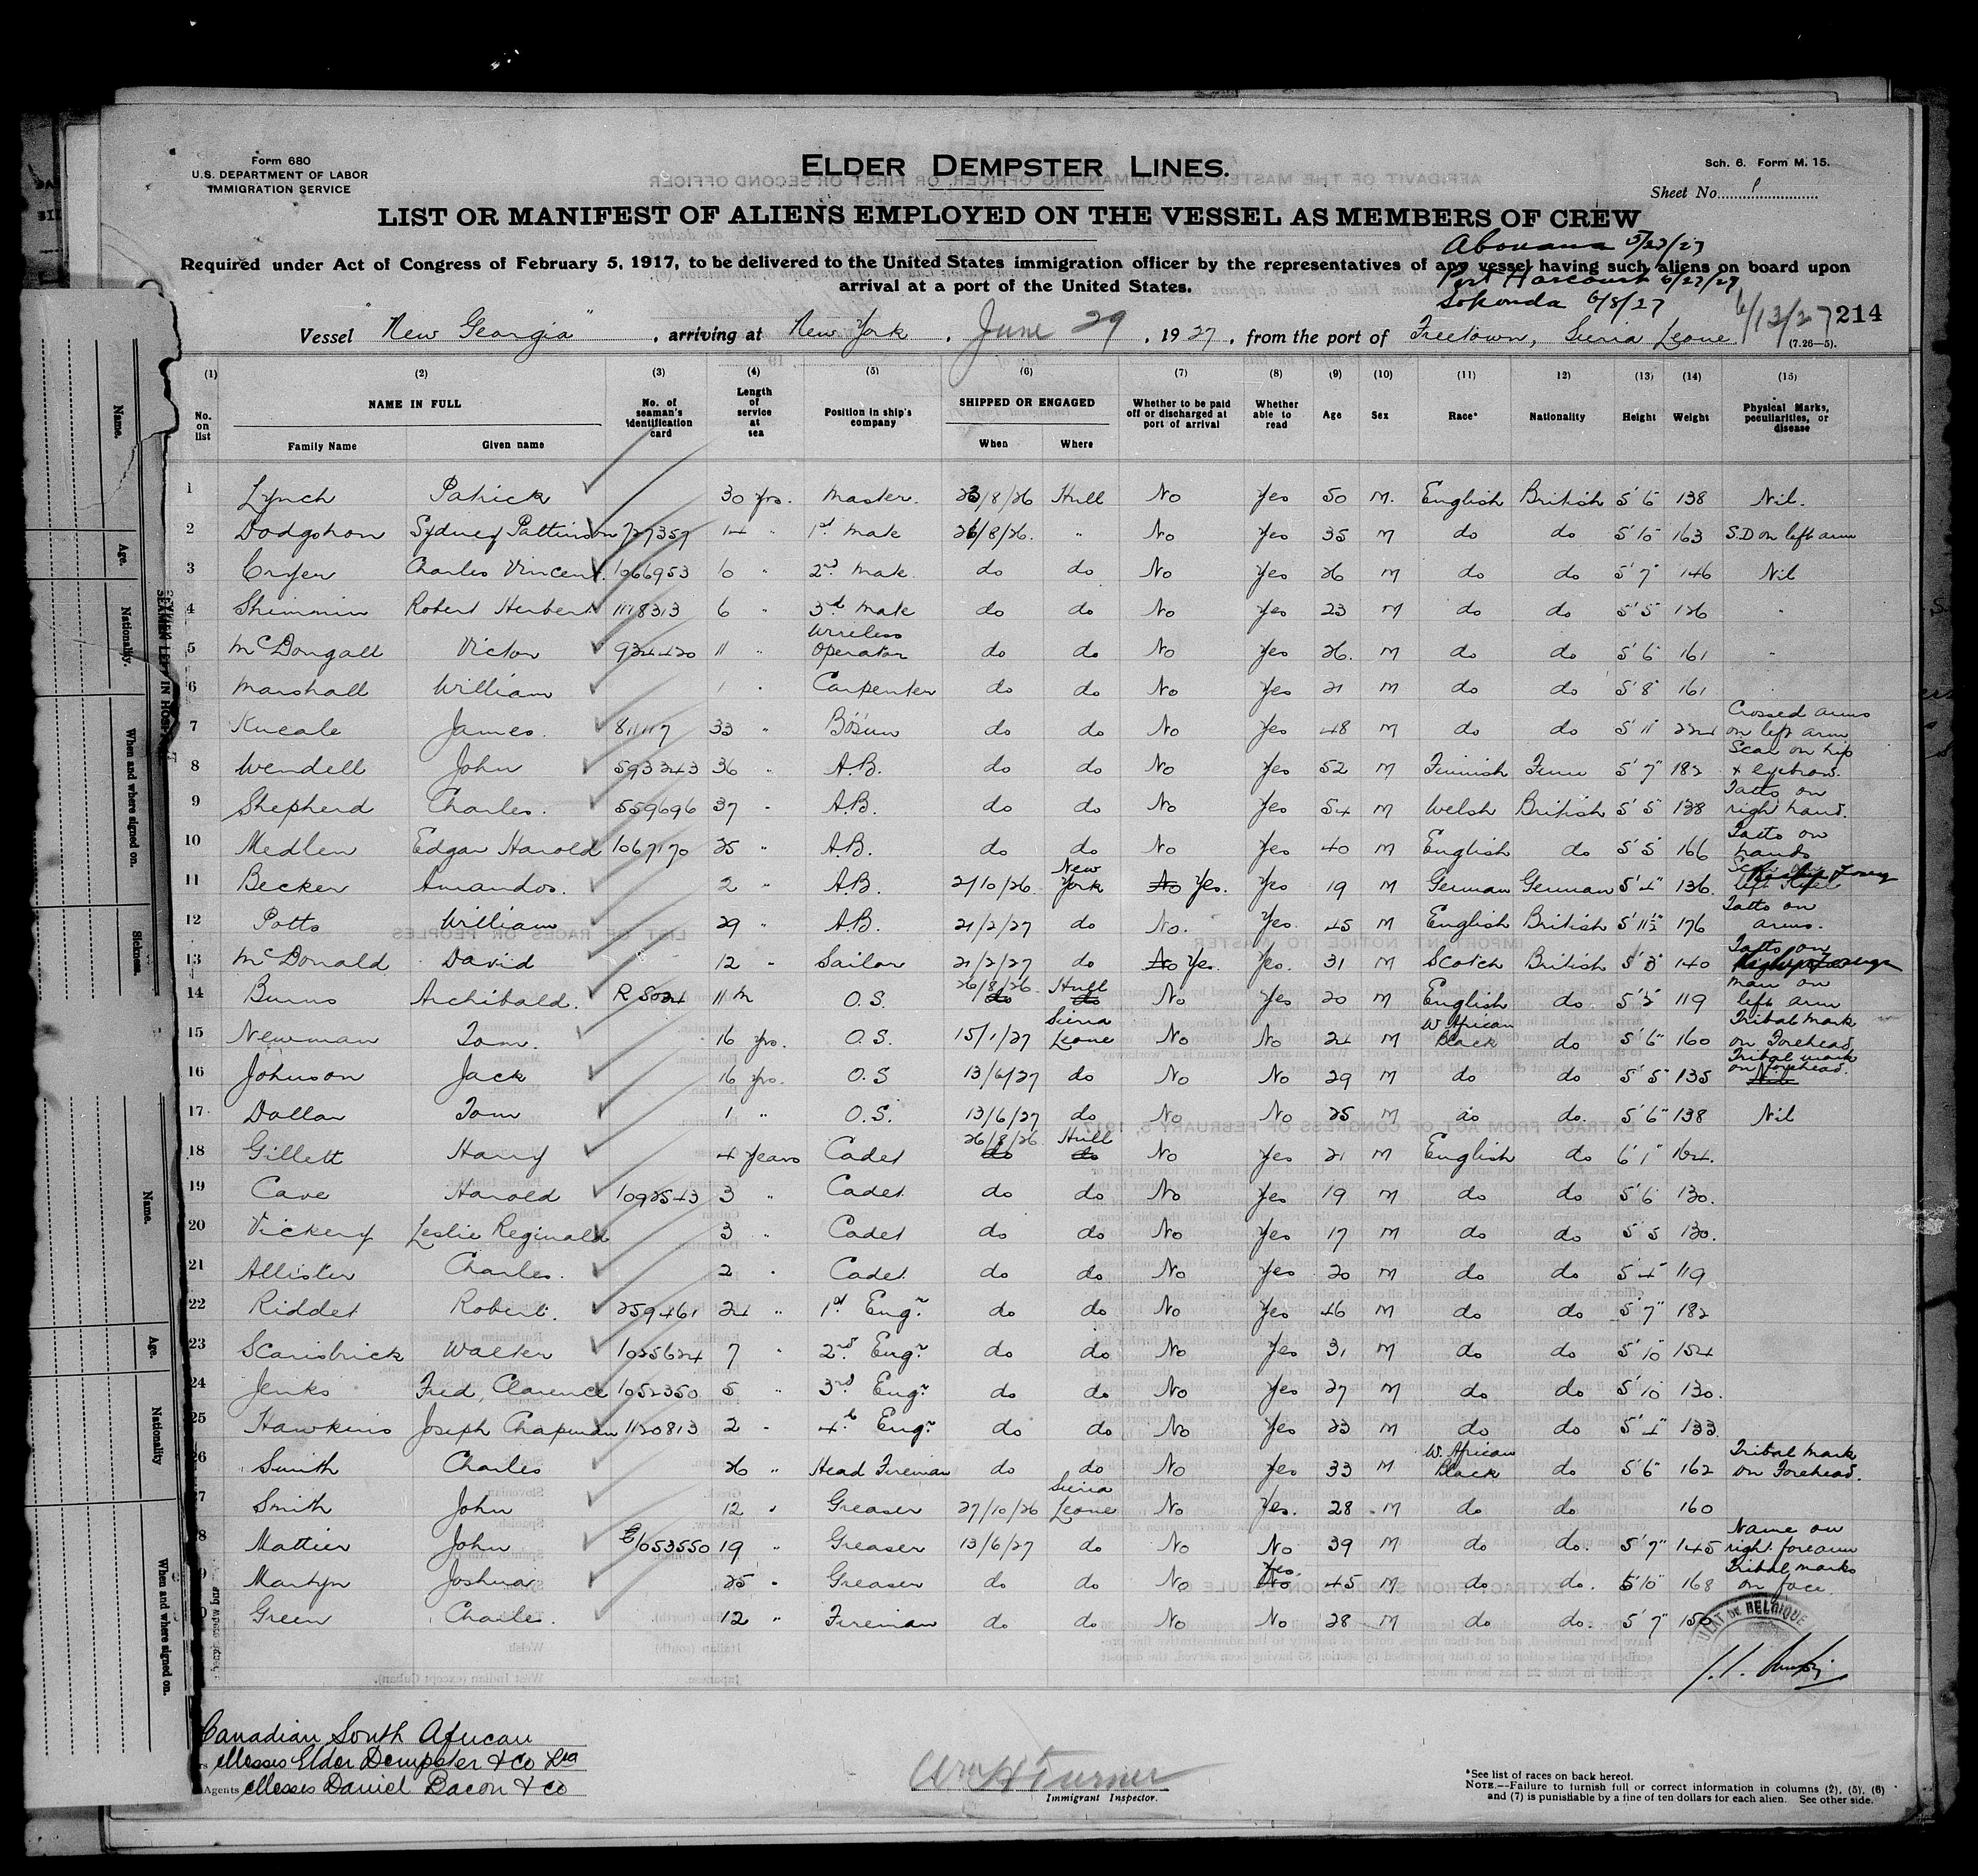 Form 680
U.S. DEPARTMENT OF LABOR
IMMIGRATION SERVICE
ELDER DEMPSTER LINES.
Sch. 6. Form M. 15.
Sheet No. 1
LIST OR MANIFEST OF ALIENS EMPLOYED ON THE VESSEL AS MEMBERS OF CREW
Required under Act of Congress of February 5, 1917, to be delivered to the United States immigration officer by the representatives of any vessel having such aliens on board upon
arrival at a port of the United States.
Port Harcourt
6/8/27
6/13/27 214
Vessel "New Georgia", arriving at New York, June 29, 1927, from the port of Freetown, Sierra Leone (7.26—5).
(1) (2) (3) (4) (5) (6) (7) (8) (9) (10) (11) 12) (13) (14) (15)
No. on list
NAME IN FULL
Family Name Given name
No. of seaman's identification card
Length of service at sea
Position in ship's company
SHIPPED OR ENGAGED
When Where
Whether to be paid off or discharged at port of arrival
Whether able to read
Age Sex Race* Nationality Height Weight
Physical Marks, peculiarities, or disease
1 Lynch Patrick 30 yrs. Master. 23/8/26 Hull No Yes 50 M. English British 5' 6" 138 Nil.
2 Dodgshon Sydney Pattinson 727359 14 " 1st Mate 26/8/26. " No Yes 35 M do do 5' 10" 163 S.D on left arm
3 Cryer Charles Vincent. 1066953 10 " 2nd Mate. do do No Yes 26 M do do 5' 7" 146 Nil
4 Shimmin Robert Herbert 1118313 6 " 3rd Mate do do No Yes 23 M do do 5' 5" 126 "
5 McDougall Victor 924420 11 " Wireless Operator do do No Yes 26. M do do 5' 6" 161 "
6 Marshall William 1 " Carpenter do do No Yes 21 M do do 5' 8" 161
7 Kneale James. 811117 33 " Bosun do do No Yes 48 M do do 5' 11" 224 Crossed arms on left arm
8 Wendell John 593243 36 " A.B. do do No Yes 52 M Finnish Finn 5' 7" 182 Scar on hip & eyebrow.
9 Shepherd Charles. 559696 37 " A.B. do do No Yes 54 M Welsh British 5' 5" 138 Tatto on right hand.
10 Medlen Edgar Harold 1067170 25 " A.B. do do No Yes 40 M English do 5' 5" 166 Tatto on hands
11 Becker Amandos. 2 " A.B. 2/10/26. New York No Yes. Yes 19 M German German 5' 4" 136.
12 Potts William 29 " A.B. 21/2/27 do No. Yes. 45 M English British 5' 11½" 176 Tatto on arms.
13 McDonald David 12 " Sailor 21/2/27 do No Yes. Yes. 31 M Scotch British 140 Tatto on
14 Burns Archibald. 11 m O.S. 26/8/26. do Hull do No Yes 20 M English do 119 man on left arm
15 Newman Tom. 16 yrs. O.S. 15/1/27 Sierra Leone No No 24 M W. African Black do 5' 6" 160 Tribal Mark on Forehead
16 Johnson Jack 16 yrs. O.S 13/6/27 do No No 29 M do do 5' 5" 135 Tribal mark on forehead. Nil
17 Dollar Tom 1 " O.S. 13/6/27 do No No 25 M do do. 5' 6" 138 Nil
18 Gillett Harry 4 years Cadet 26/8/26 do Hull do No Yes 21 M English do 6' 1" 164.
19 Cave Harold 1092543 3 " Cadet do do No Yes 19 M do do 5' 6" 130.
20 Vickery Leslie Reginald 3 " Cadet do do No Yes 17 M do do 5' 5 130.
21 Allister Charles. 2 " Cadet do do No Yes 20 M do do 5' 4" 119
22 Riddet Robert. 259461 24 " 1st Engr do do No Yes 46 M do do 5' 7" 182
23 Scarisbrick Walter 1025624 7 " 2nd Engr do do No Yes 31 M do do 5' 10" 154
24 Jenks Fred, Clarence 1052350 5 " 3rd Engr do do No Yes 27 M do do 5' 10" 130.
25 Hawkins Joseph Chapman 1120813 2 " 4th Engr do do No Yes 23 M do do 5' 4" 133.
26 Smith Charles 26 " Head Fireman do do No Yes 33 M W. African Black do 5' 6" 162 Tribal Mark on Forehead.
27 Smith John 12 " Greaser 27/10/26 Sierra Leone No Yes. 28 M do do 160
8 Mattier John 1053550 19 " Greaser 13/6/27 do No No 39 M do do. 5' 7" 145 Name on right forearm
9 Martyn Joshua 25 " Greaser do do No Yes. No 45 M do do. 5' 10" 168 Tribal marks on face.
0 Green Charles. 12 " Fireman do do No No 28 M do do. 5' 7" 150
DE BELGIQUE
Canadian South African
Messrs Elder Dempster & Co Ltd
Agents Messrs Daniel Bacon & Co
Wm H Turner
Immigrant Inspector.
*See list of races on back hereof.
NOTE.—Failure to furnish full or correct information in columns (2), (5), (6)
and (7) is punishable by a fine of ten dollars for each alien. See other side.
Name.
Age.
Nationality.
When and where signed on.
Sickness.
Name.
Age.
Nationality
When and where signed on.